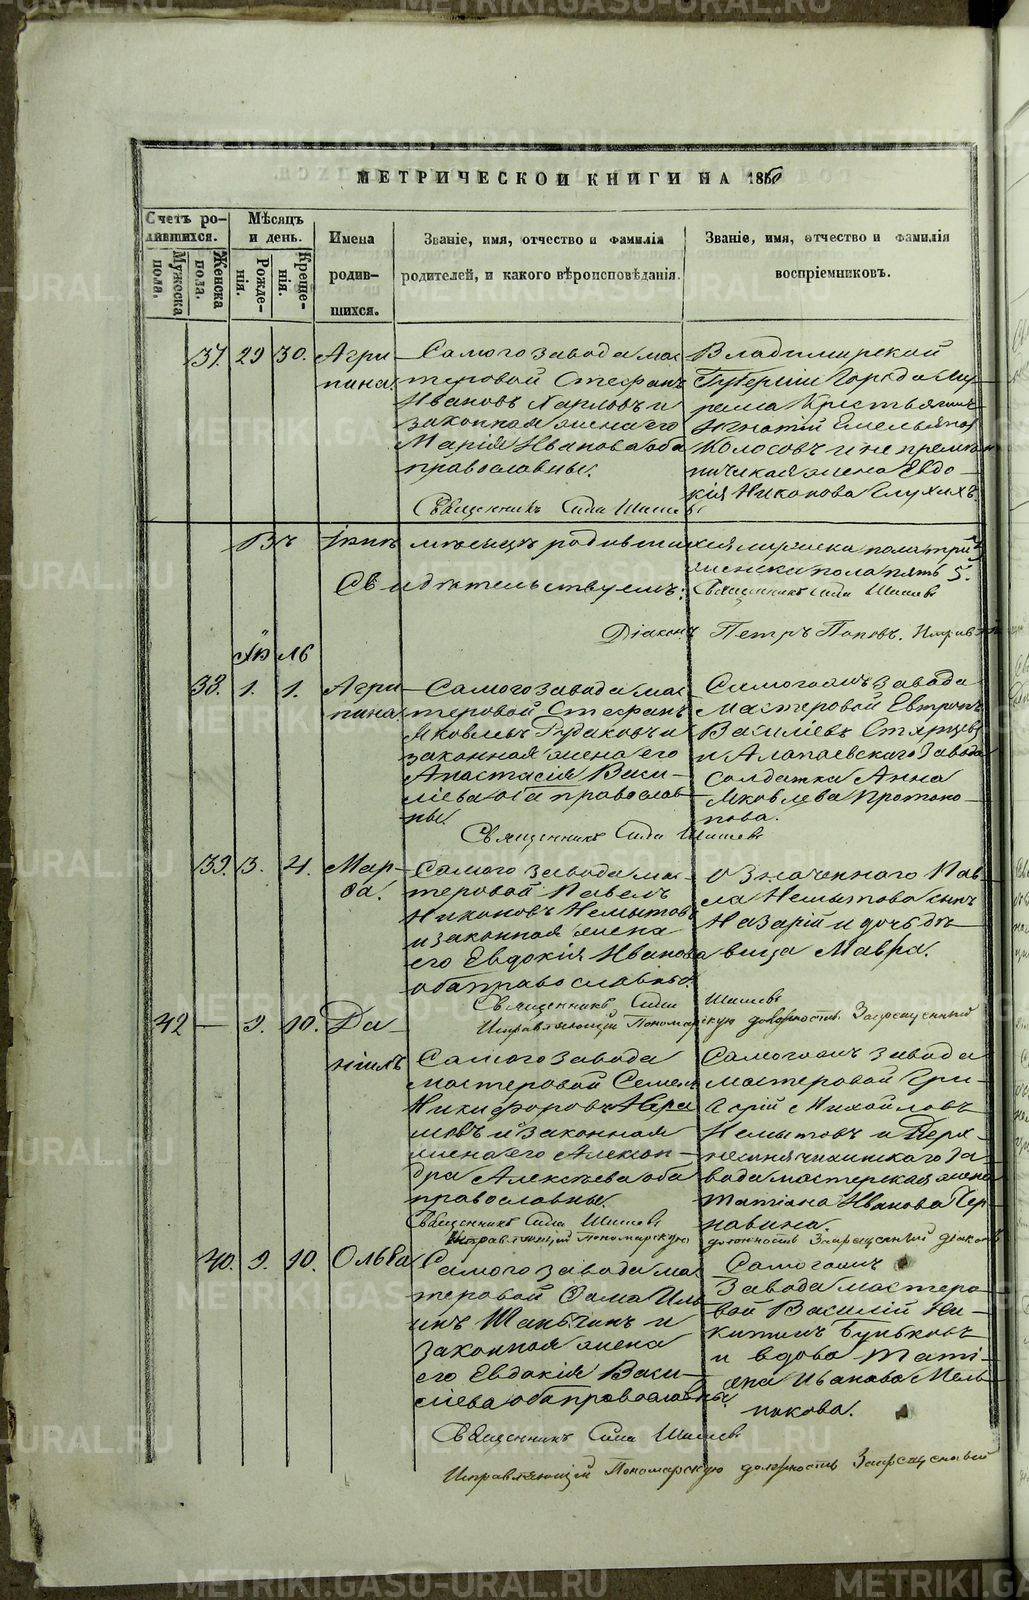 МЕТРИЧЕСКОЙ КНИГИ НА 1860
Счетъ ро-
дившихся.
Мужеска пола.
Женска пола.
Мѣсяцъ
и день.
Рожде-
нія.
Креще-
нія.
Имена
родив-
шихся.
Званіе, имя, отчество и фамилія
родителей, и какого вѣроисповѣданія.
Званіе, имя, отчество и фамилія
воспріемниковъ.
37. 29 30. Агри-
пина
Самого завода мас
теровой Стефанъ
Ивановъ Карловъ и
законная жена его
Марія Иванова оба
православны.
Священникъ Сила Шишевъ
Владимирской
Губерніи Города Му
рома Крестьянинъ
Игнатій Емельяновъ
Колосовъ и
жена Евдо
кія Никонова Глухихъ
Въ Іюнѣ мѣсяцѣ родившихся мужеска пола три 3
женска пола пять 5.
Свидѣтельствуемъ: Священникъ Сила Шишевъ
Діаконъ Петръ Поповъ.
Іюль
38. 1. 1. Агри-
пина
Самого завода мас
теровой Стефанъ
Яковлевъ Гудаковъ и
законная жена его
Анастасія Васи-
ліева оба православ
ны.
Священникъ Сила Шишевъ
Самого завода
Мастеровой Евтропъ
Василіевъ Старцевъ
и Алапаевскаго завода
солдатка Анна
Яковлева Протопо-
пова.
39. 3. 4. Мар-
ѳа.
Самого завода ма-
теровой Павелъ
Никоновъ Немытовъ
и законная жена
его Евдокія Иванова
оба православны.
Священникъ Сила Шишевъ
Исправляющій Пономарскую должность Запрещенный
Означеннаго Пав
ла Немытова сынъ
Назарій и дочь дѣ
вица Мавра.
42 — 9. 10. Да-
ніилъ
Самого завода
мастеровой Семенъ
Никифоровъ
и законная
жена его Алексан-
дра Алексѣева оба
православны.
Священникъ Сила Шишевъ
Исправляющій Пономарскую должность Запрещенный діаконъ
завода
мастеровой Гри-
горій Михайловъ
Немытовъ и Верх-
несинячихинскаго за
вода мастерская жена
Татіана Иванова Чер-
навина.
40. 9. 10. Ольга
Самого завода мас
теровой Ѳома Иль
инъ Шаньгинъ и
законная жена
его Евдокія Васи-
ліева оба православны.
Священникъ Сила Шишевъ
Исправляющій Пономарскую должность Запрещенный
завода мастеро-
вой Василій Ни-
китинъ Буньковъ
и вдова Тати-
яна Иванова Мель
никова.
METRIKI.GASO-URAL.RU